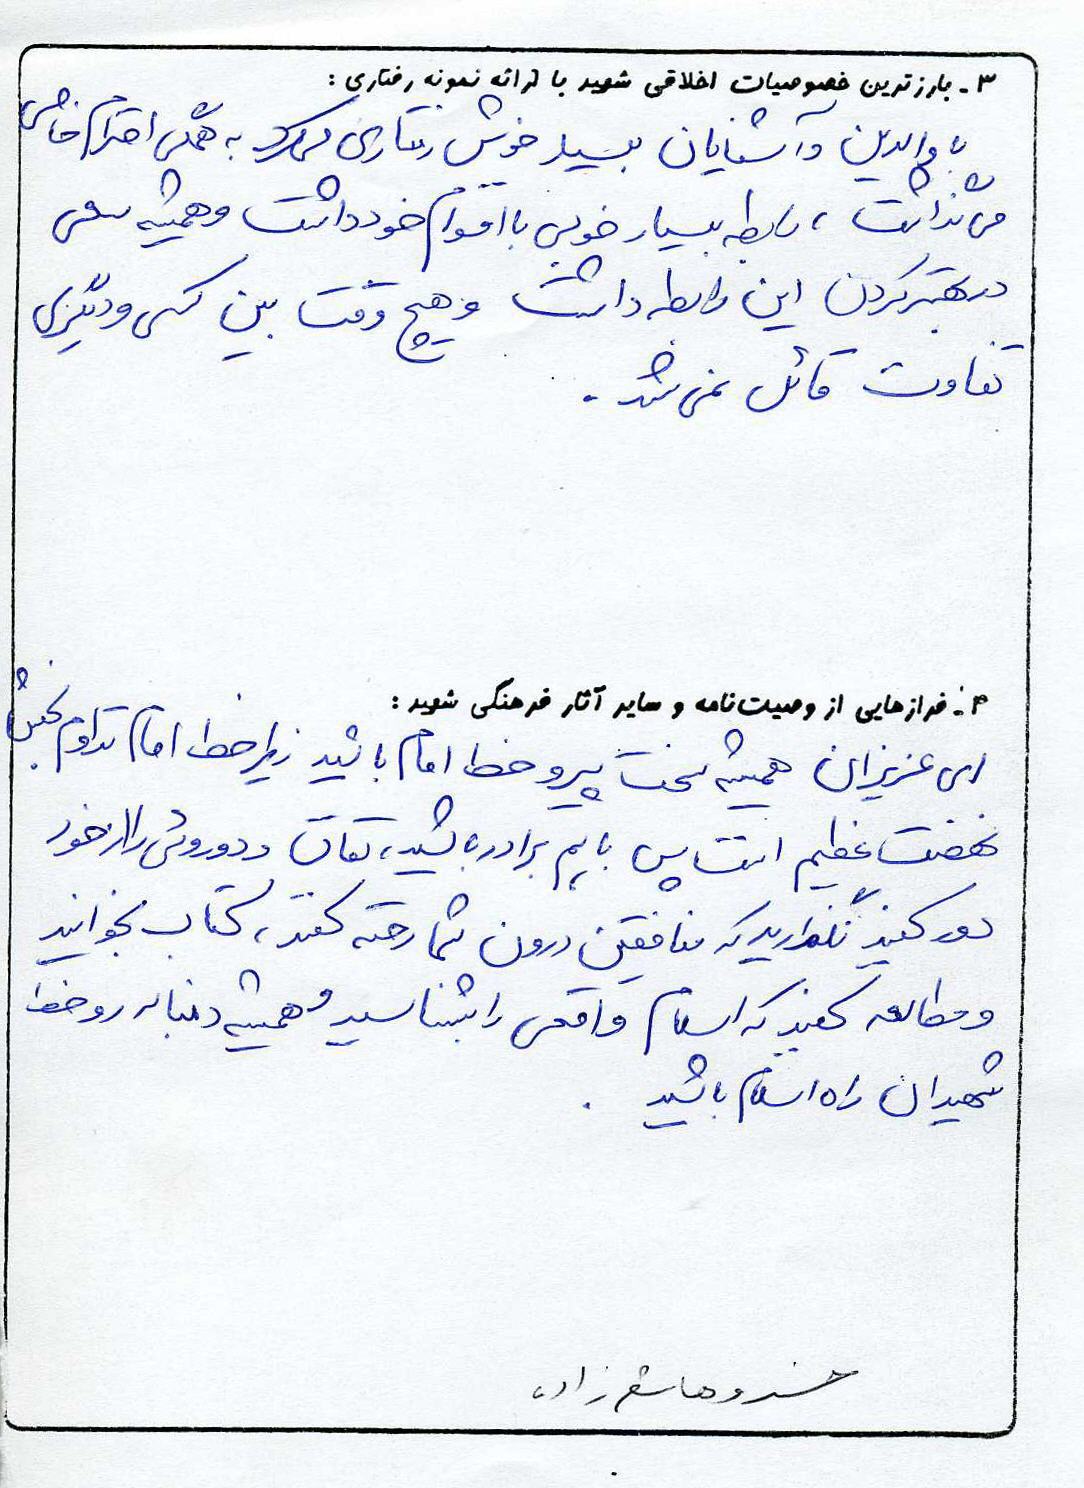 ۳ـ بارزترین خصوصیات اخلاقی شهید با ارائه نمونه رفتاری :
با والدین و آشنایان بسیار خوش رفتاری میکرد به همگی احترام خاصی
می گذاشت ، رابطه بسیار خوبی با اقوام خود داشت و همیشه سعی
در بهتر کردن این رابطه داشت و هیچ وقت بین کسی و دیگری
تفاوت قائل نمی شد .
۴ـ فرازهایی از وصیت‌نامه و سایر آثار فرهنگی شهید :
ای عزیزان همیشه سخت پیرو خط امام باشید زیرا خط امام تداوم بخش
نهضت عظیم است پس با هم برادر باشید ، نفاق و دورویی را از خود
دور کنید نگذارید که منافقین درون شما رخنه کنند ، کتاب بخوانید
و مطالعه کنید که اسلام واقعی را بشناسید و همیشه دنباله رو خط
شهیدان راه اسلام باشید .
خسرو هاشم زاده